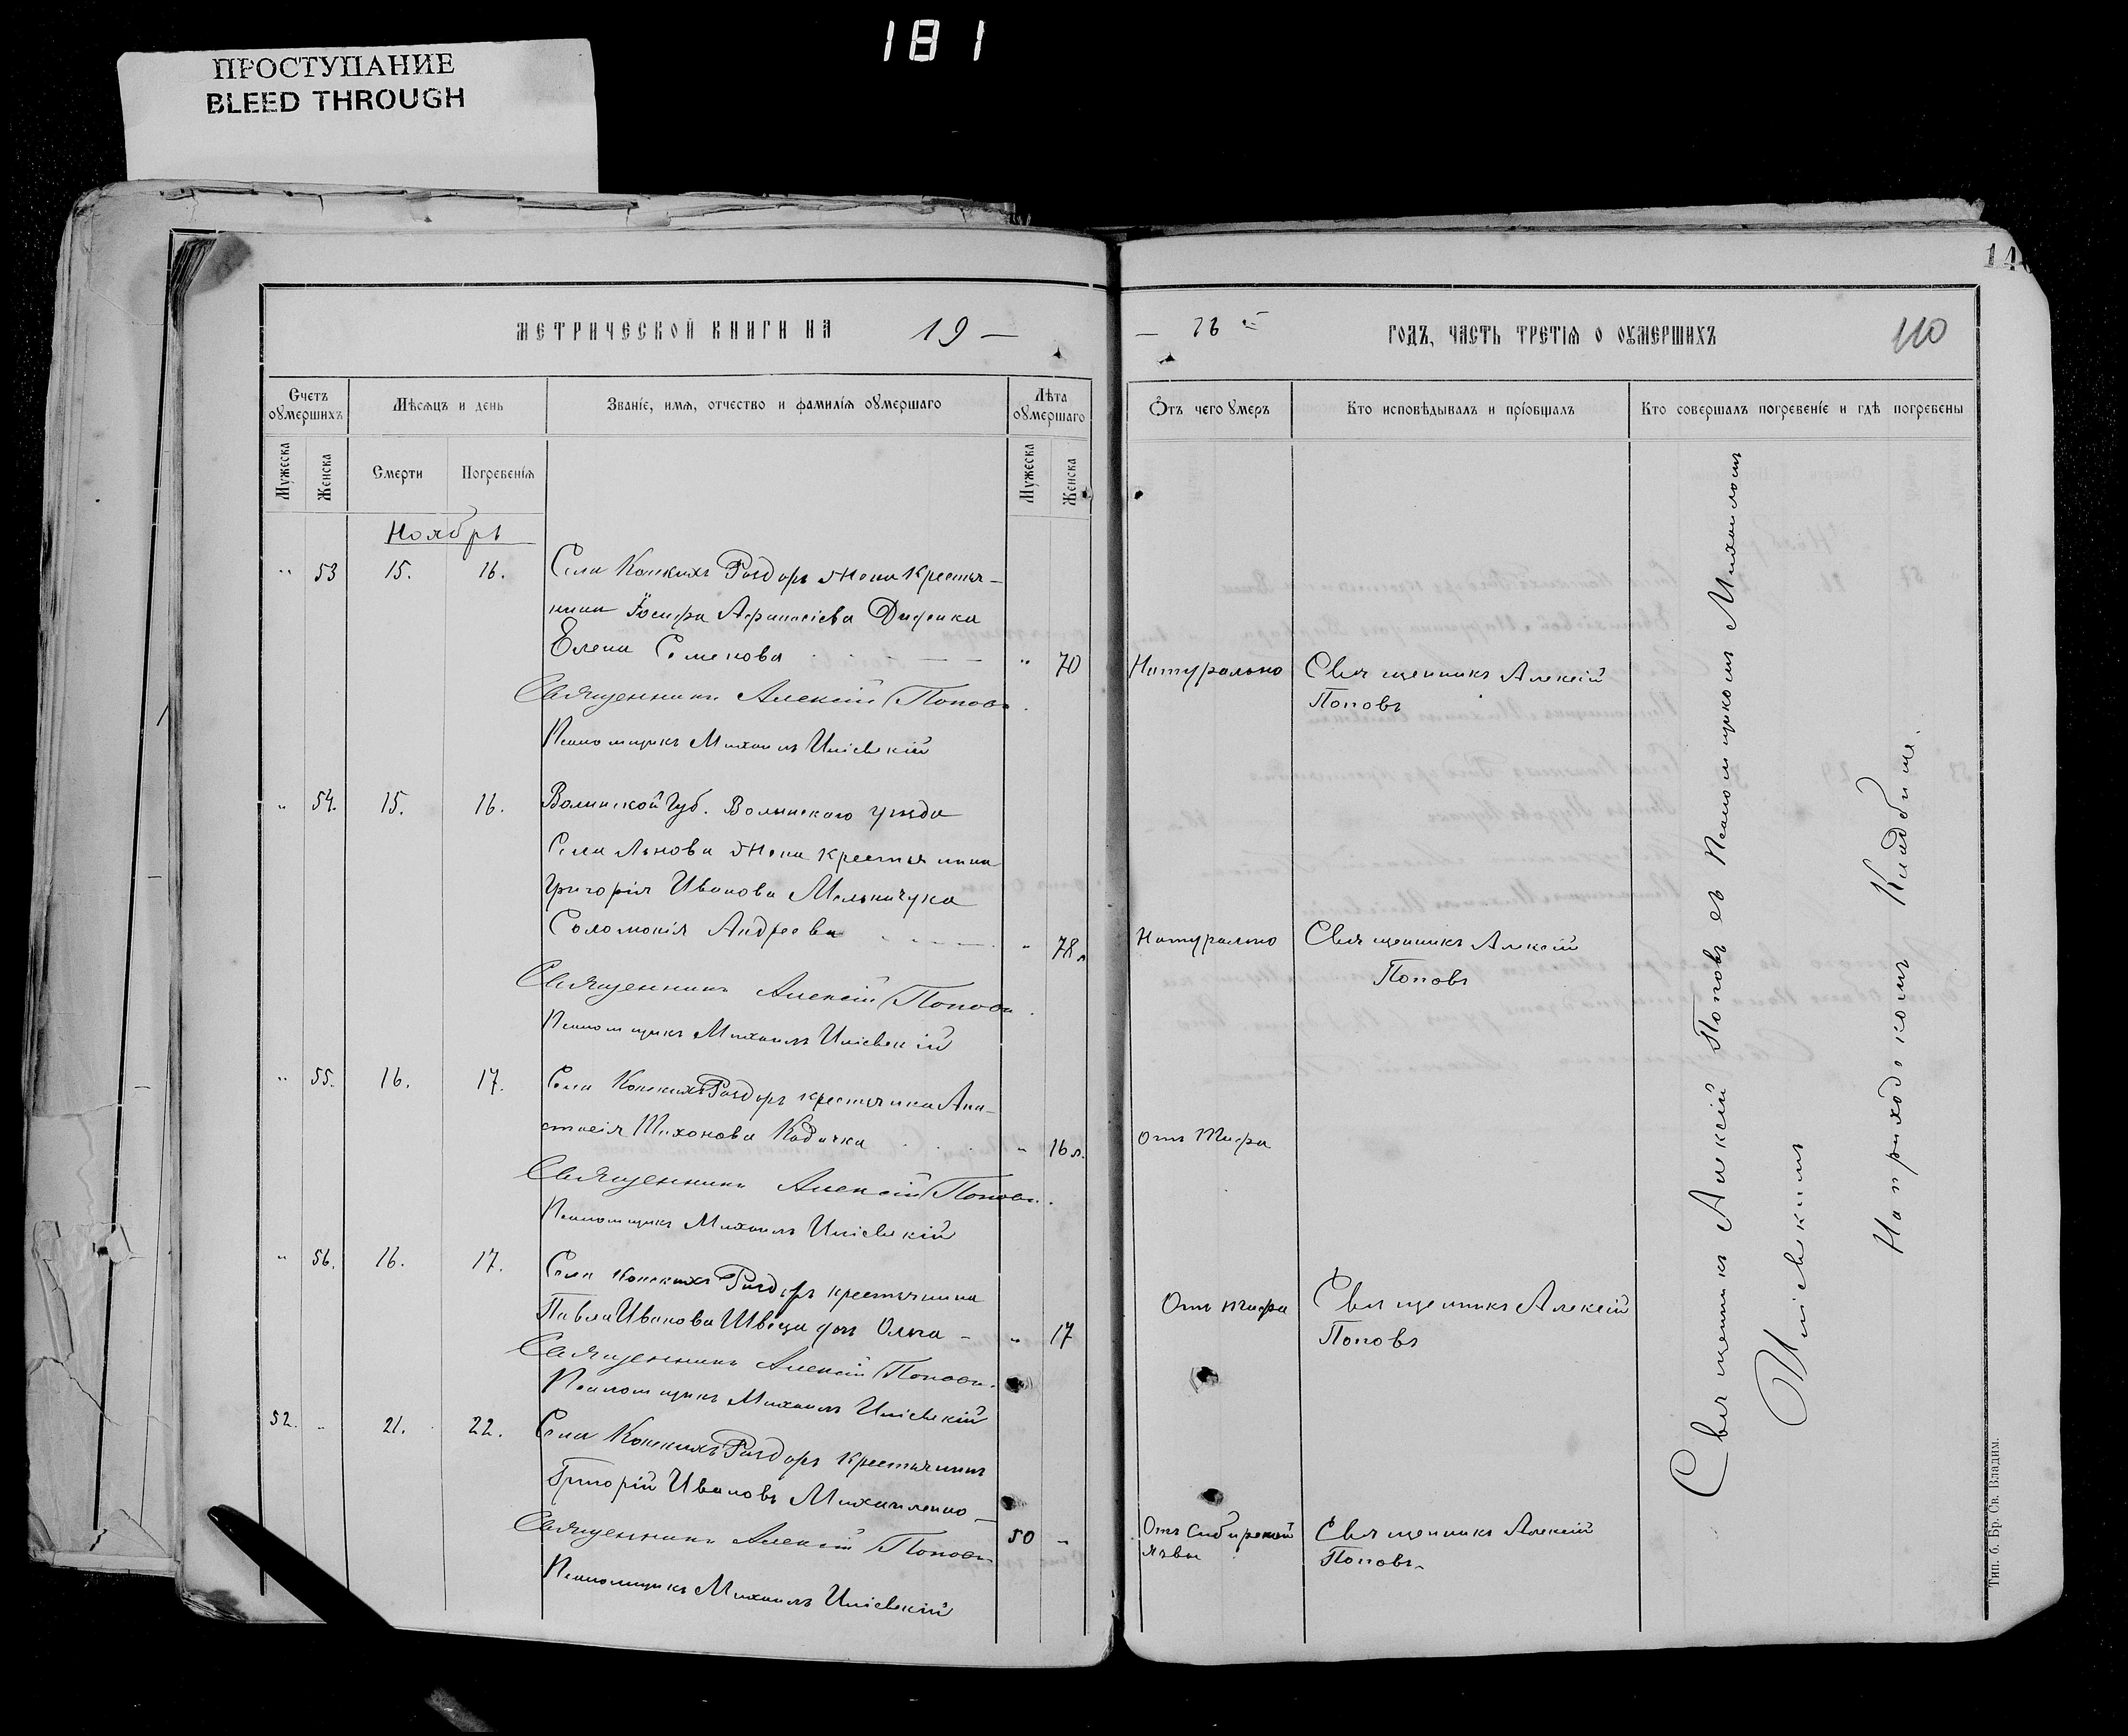 181
ПРОСТУПАНИЕ
BLEED THROUGH
МЕТРИЧЕСКОЙ КНИГИ НА 19 —
Счетъ оумершихъ
Мѣсяцъ и день
Званіе, имя, отчество и фамилія оумершаго
Лѣта оумершаго
Мужеска
Женска
Смерти
Погребенія
Мужеска
Женска
Ноябрь
" 53 15. 16. Села Конскихъ Раздоръ жена крестья-
нина Іосифа Афанасіева Диденка
Елена Семенова " 70
Священникъ Алексій Поповъ.
Псаломщикъ Михаилъ Иліевскій
" 54. 15. 16. Волынской Губ. Волынскаго уѣзда
Села Львова жена крестьянина
Григорія Иванова Мельничука
Соломонія Андреева " 78 л
Священникъ Алексій Поповъ.
Псаломщикъ Михаилъ Иліевскій
" 55. 16. 17. Села Конскихъ Раздоръ крестьянка Ана-
стасія Тихонова " 16 л.
Священникъ Алексій Поповъ.
Псаломщикъ Михаилъ Иліевскій
" 56. 16. 17. Села Конскихъ Раздоръ крестьянина
Павла Иванова Швеца дочь Ольга - " 17
Священникъ Алексій Поповъ.
Псаломщикъ Михаилъ Иліевскій
52. " 21. 22. Села Конскихъ Раздоръ крестьянинъ
Григорій Ивановъ Михайленко
Священникъ Алексій Поповъ 50 "
Псаломщикъ Михаилъ Иліевскій
140
— 16 й ГОДЪ, ЧАСТЬ ТРЕТІЯ О ОУМЕРШИХЪ 110
Отъ чего умеръ
Кто исповѣдывалъ и пріобщалъ
Кто совершалъ погребеніе и гдѣ погребены
Натурально Священникъ Алексій
Поповъ
Натурально Священникъ Алексій
Поповъ
Отъ Тифа
Отъ тифа Священникъ Алексій
Поповъ
Отъ Сибирской Священникъ Алексій
язвы Поповъ
Священникъ Алексій Поповъ съ Псаломщикомъ Михаиломъ
Иліевскимъ
На приходскомъ Кладбищѣ.
Тип. б. Бр. Св. Владим.